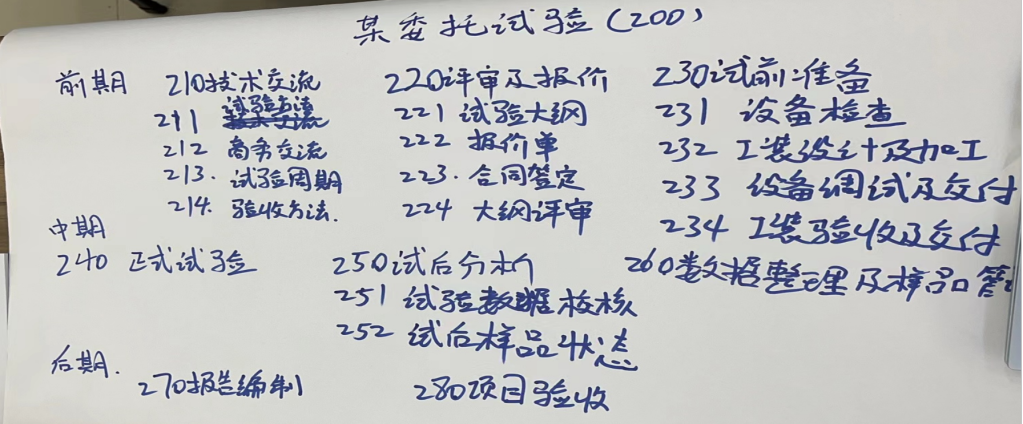 某委托试验(200)
前期 210技术交流 220评审及报价 230试前准备
211 试验方法 221 试验大纲 231 设备检查
212 商务交流 222 报价单 232 工装设计及加工
213. 试验周期 223. 合同签定 233 设备调试及交付
214. 验收方法. 224 大纲评审 234 工装验收及交付
中期
240 正式试验 250试后分析 260数据整理及样品管
251 试验数据校核
252 试后样品状态
后期.
270报告编制 280项目验收